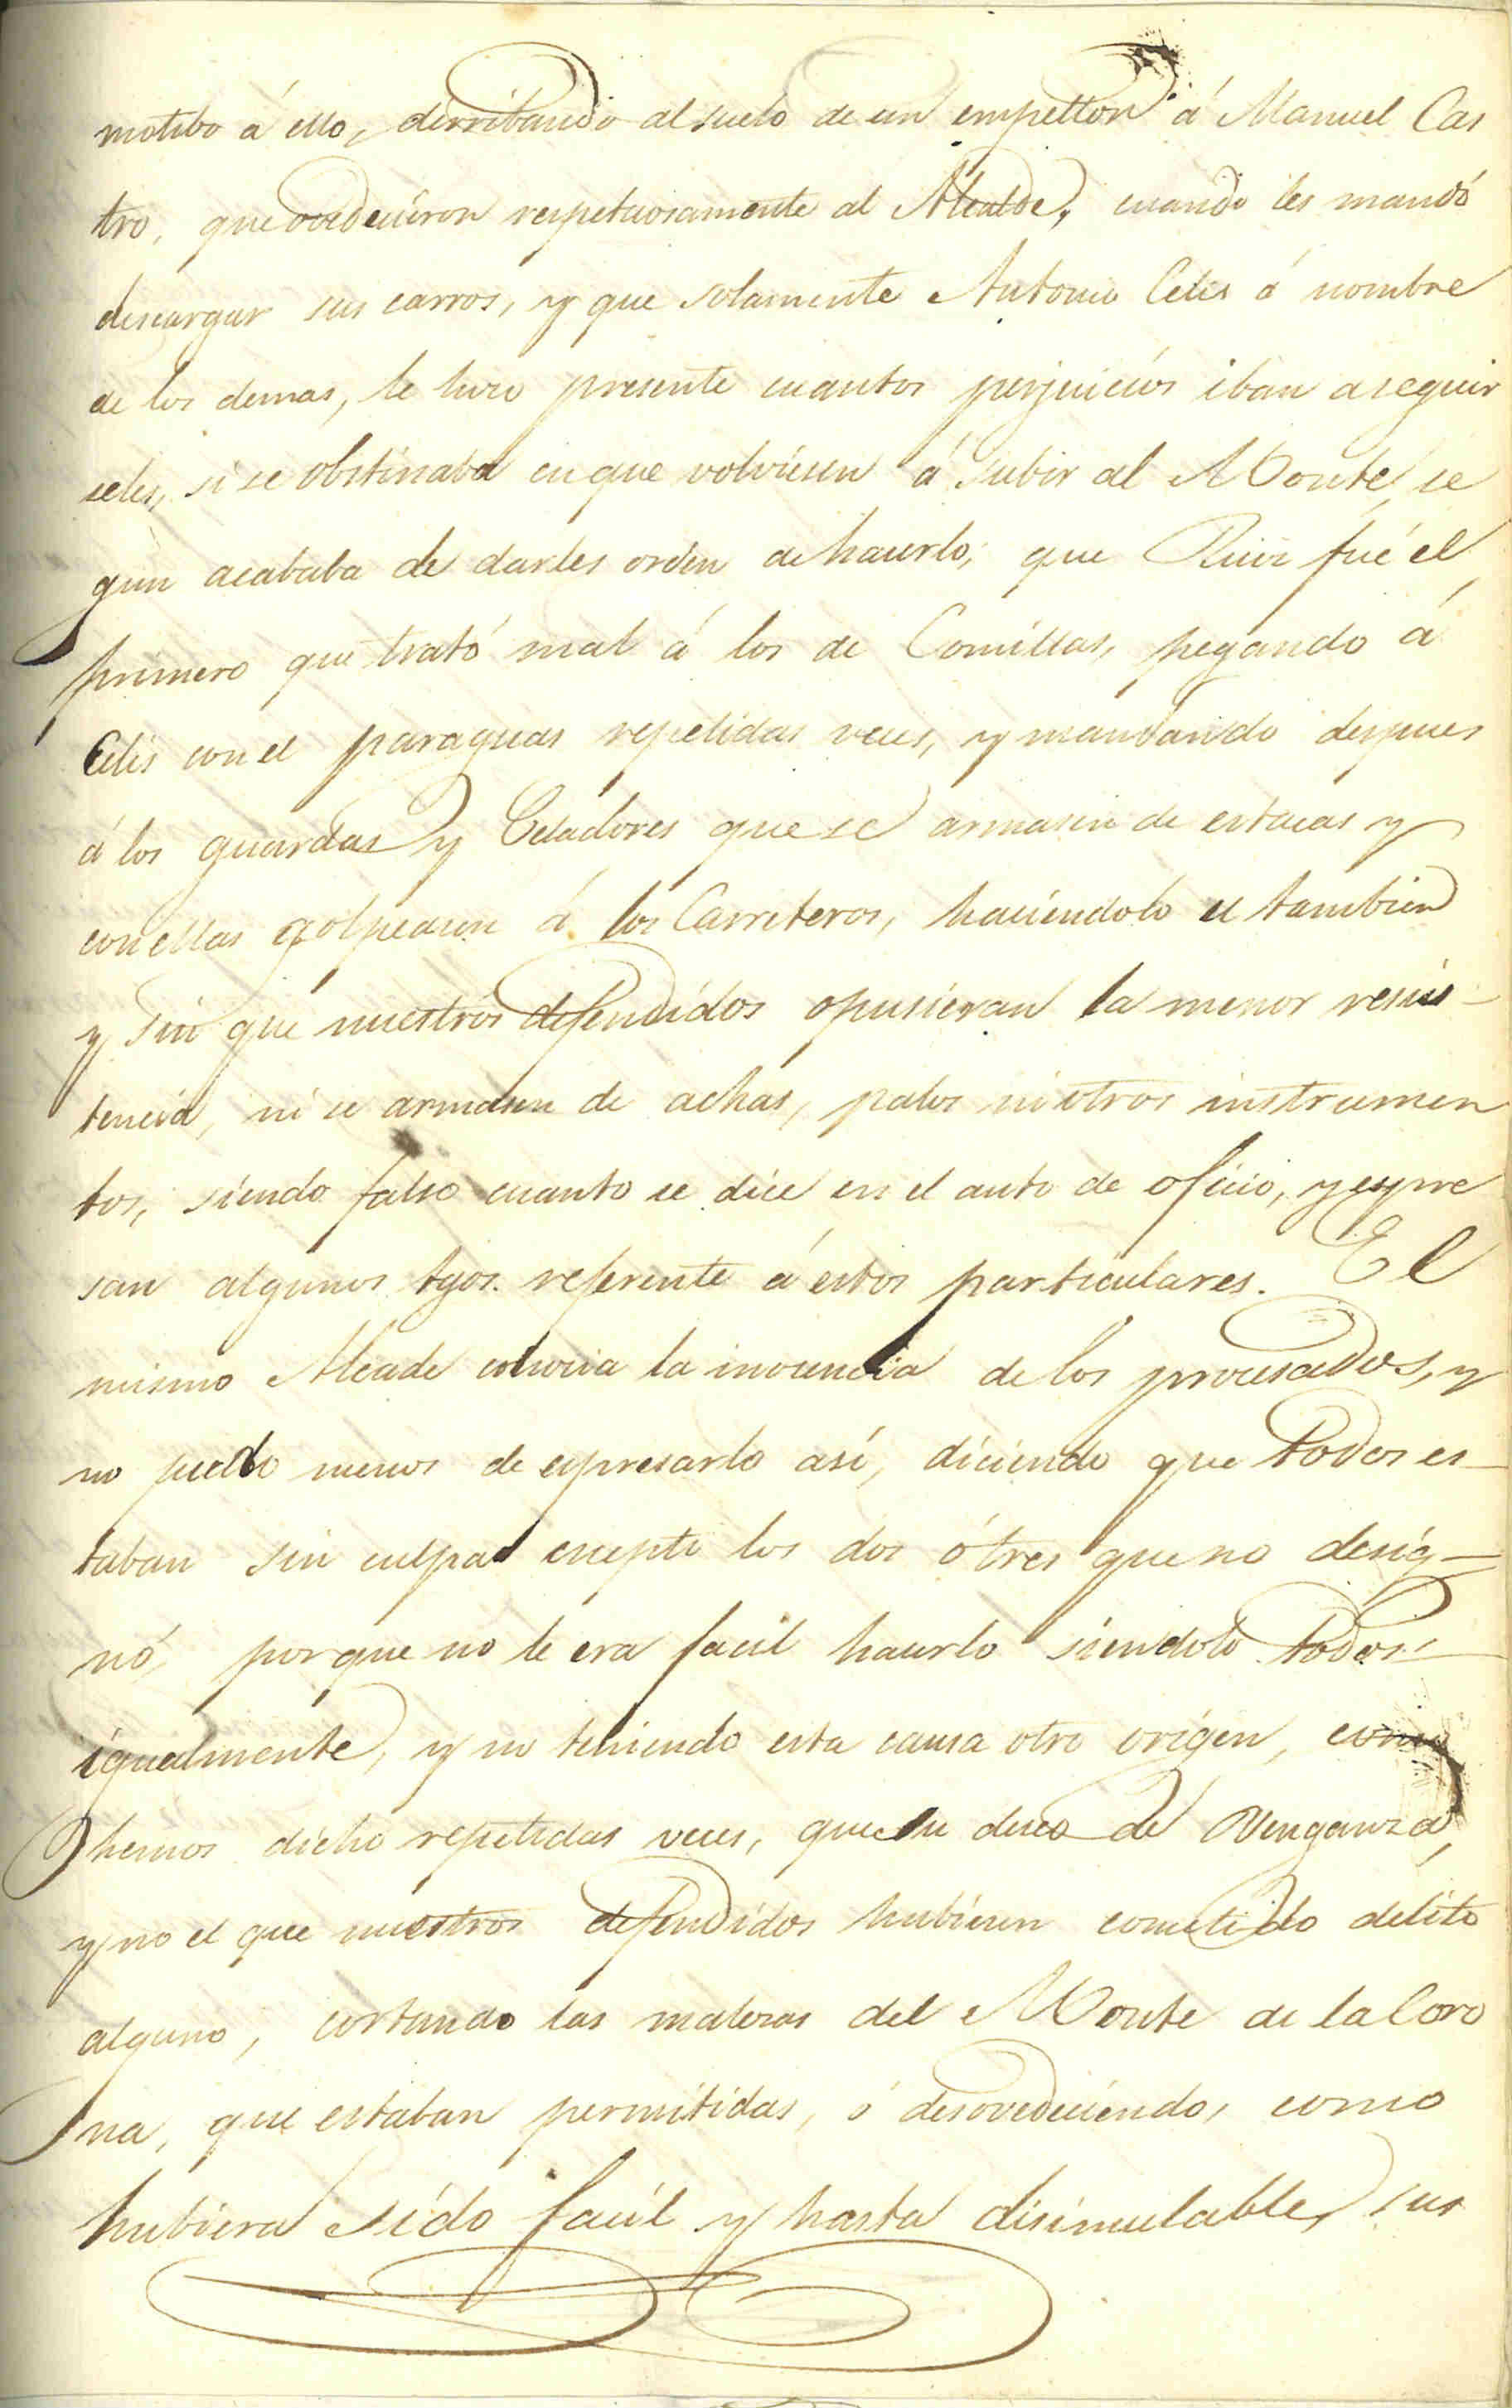 motibo á ello, dirribando al suelo de un empellon á Manuel Cas
tro, que ovedecieron respetuosamente al Alcalde, cuando les mandó
descargar sus carros, y que solamente Antonio Celis á nombre
de los demas, le hizo presente cuantos perjuicios iban a seguir
seles, si se obstinaba en que volviesen á subir al Monte, se
gun acababa de darles orden de hacerlo; que Ruiz fué el
primero que trató mal á los de Comillas, pegando á
Celis con el paraguas repetidas veces, y mandando despues
á los guardas y Celadores que se armasen de estacas y
con ellas golpeasen á los Carreteros, haciéndolo el tambien
y sin que nuestros defendidos opusieran la menor resis-
tencia, ni se armasen de achas, palos ni otros instrumen
tos, siendo falso cuanto se dice en el auto de oficio, y espre
san algunos tgos. referente á estos particulares. El
mismo Alcade conocia la inocencia de los procesados, y
no pudo menos de espresarlo así, diciendo que todos es-
taban sin culpa escepto los dos ó tres que no desig-
nó, porque no le era facil hacerlo siendolo todos
igualmente, y no teniendo esta causa otro origen, como
hemos dicho repetidas veces, que su deseo de Venganza,
y no el que nuestros defendidos hubiesen cometido delito
alguno, cortando las malezas del Monte de la Coro
na, que estaban permitidas, ó desovedeciendo, como
hubiera sido facil y hasta disimulable, sus